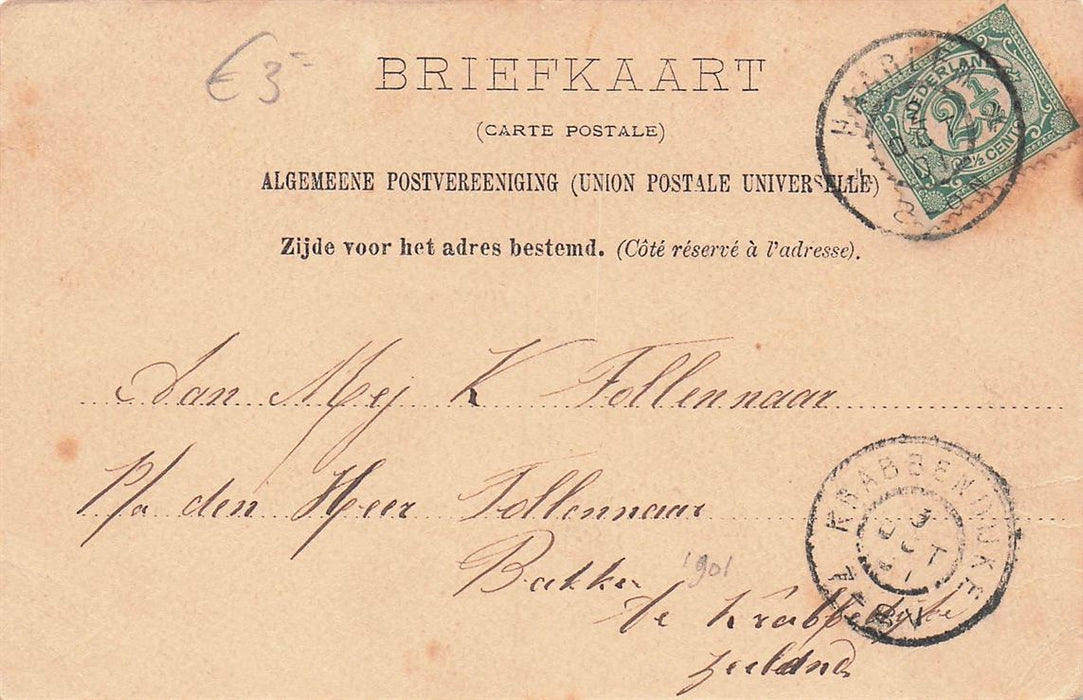 € 3-
BRIEFKAART
(CARTE POSTALE)
ALGEMEENE POSTVEREENIGING (UNION POSTALE UNIVERSELLE)
Zijde voor het adres bestemd. (Côté réservé à l'adresse).
NEDERLAND
2½
2½ CENT
HAARLEM
Aan Mej K Follennaar
P/a den Heer Follennaar
Bakker
1901
te Krabbendijke
Zeeland
KRABBENDIJKE
3
OCT